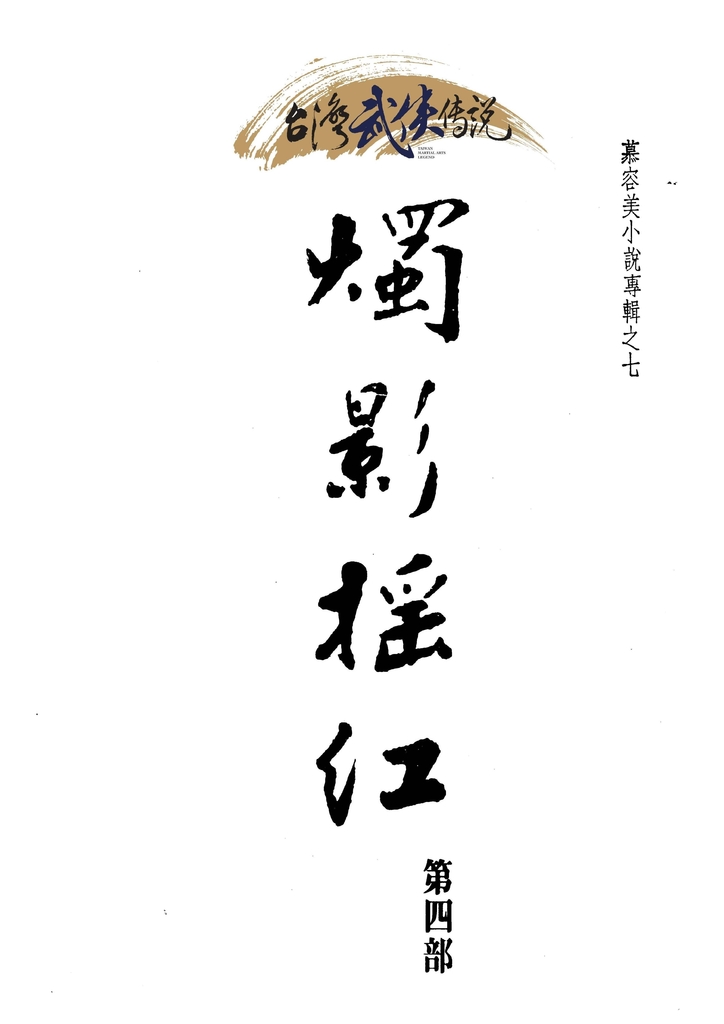 台灣武俠传説
TAIWAN
MARTIAL ARTS
LEGEND
慕容美小說專輯之七
燭影摇红
第四部